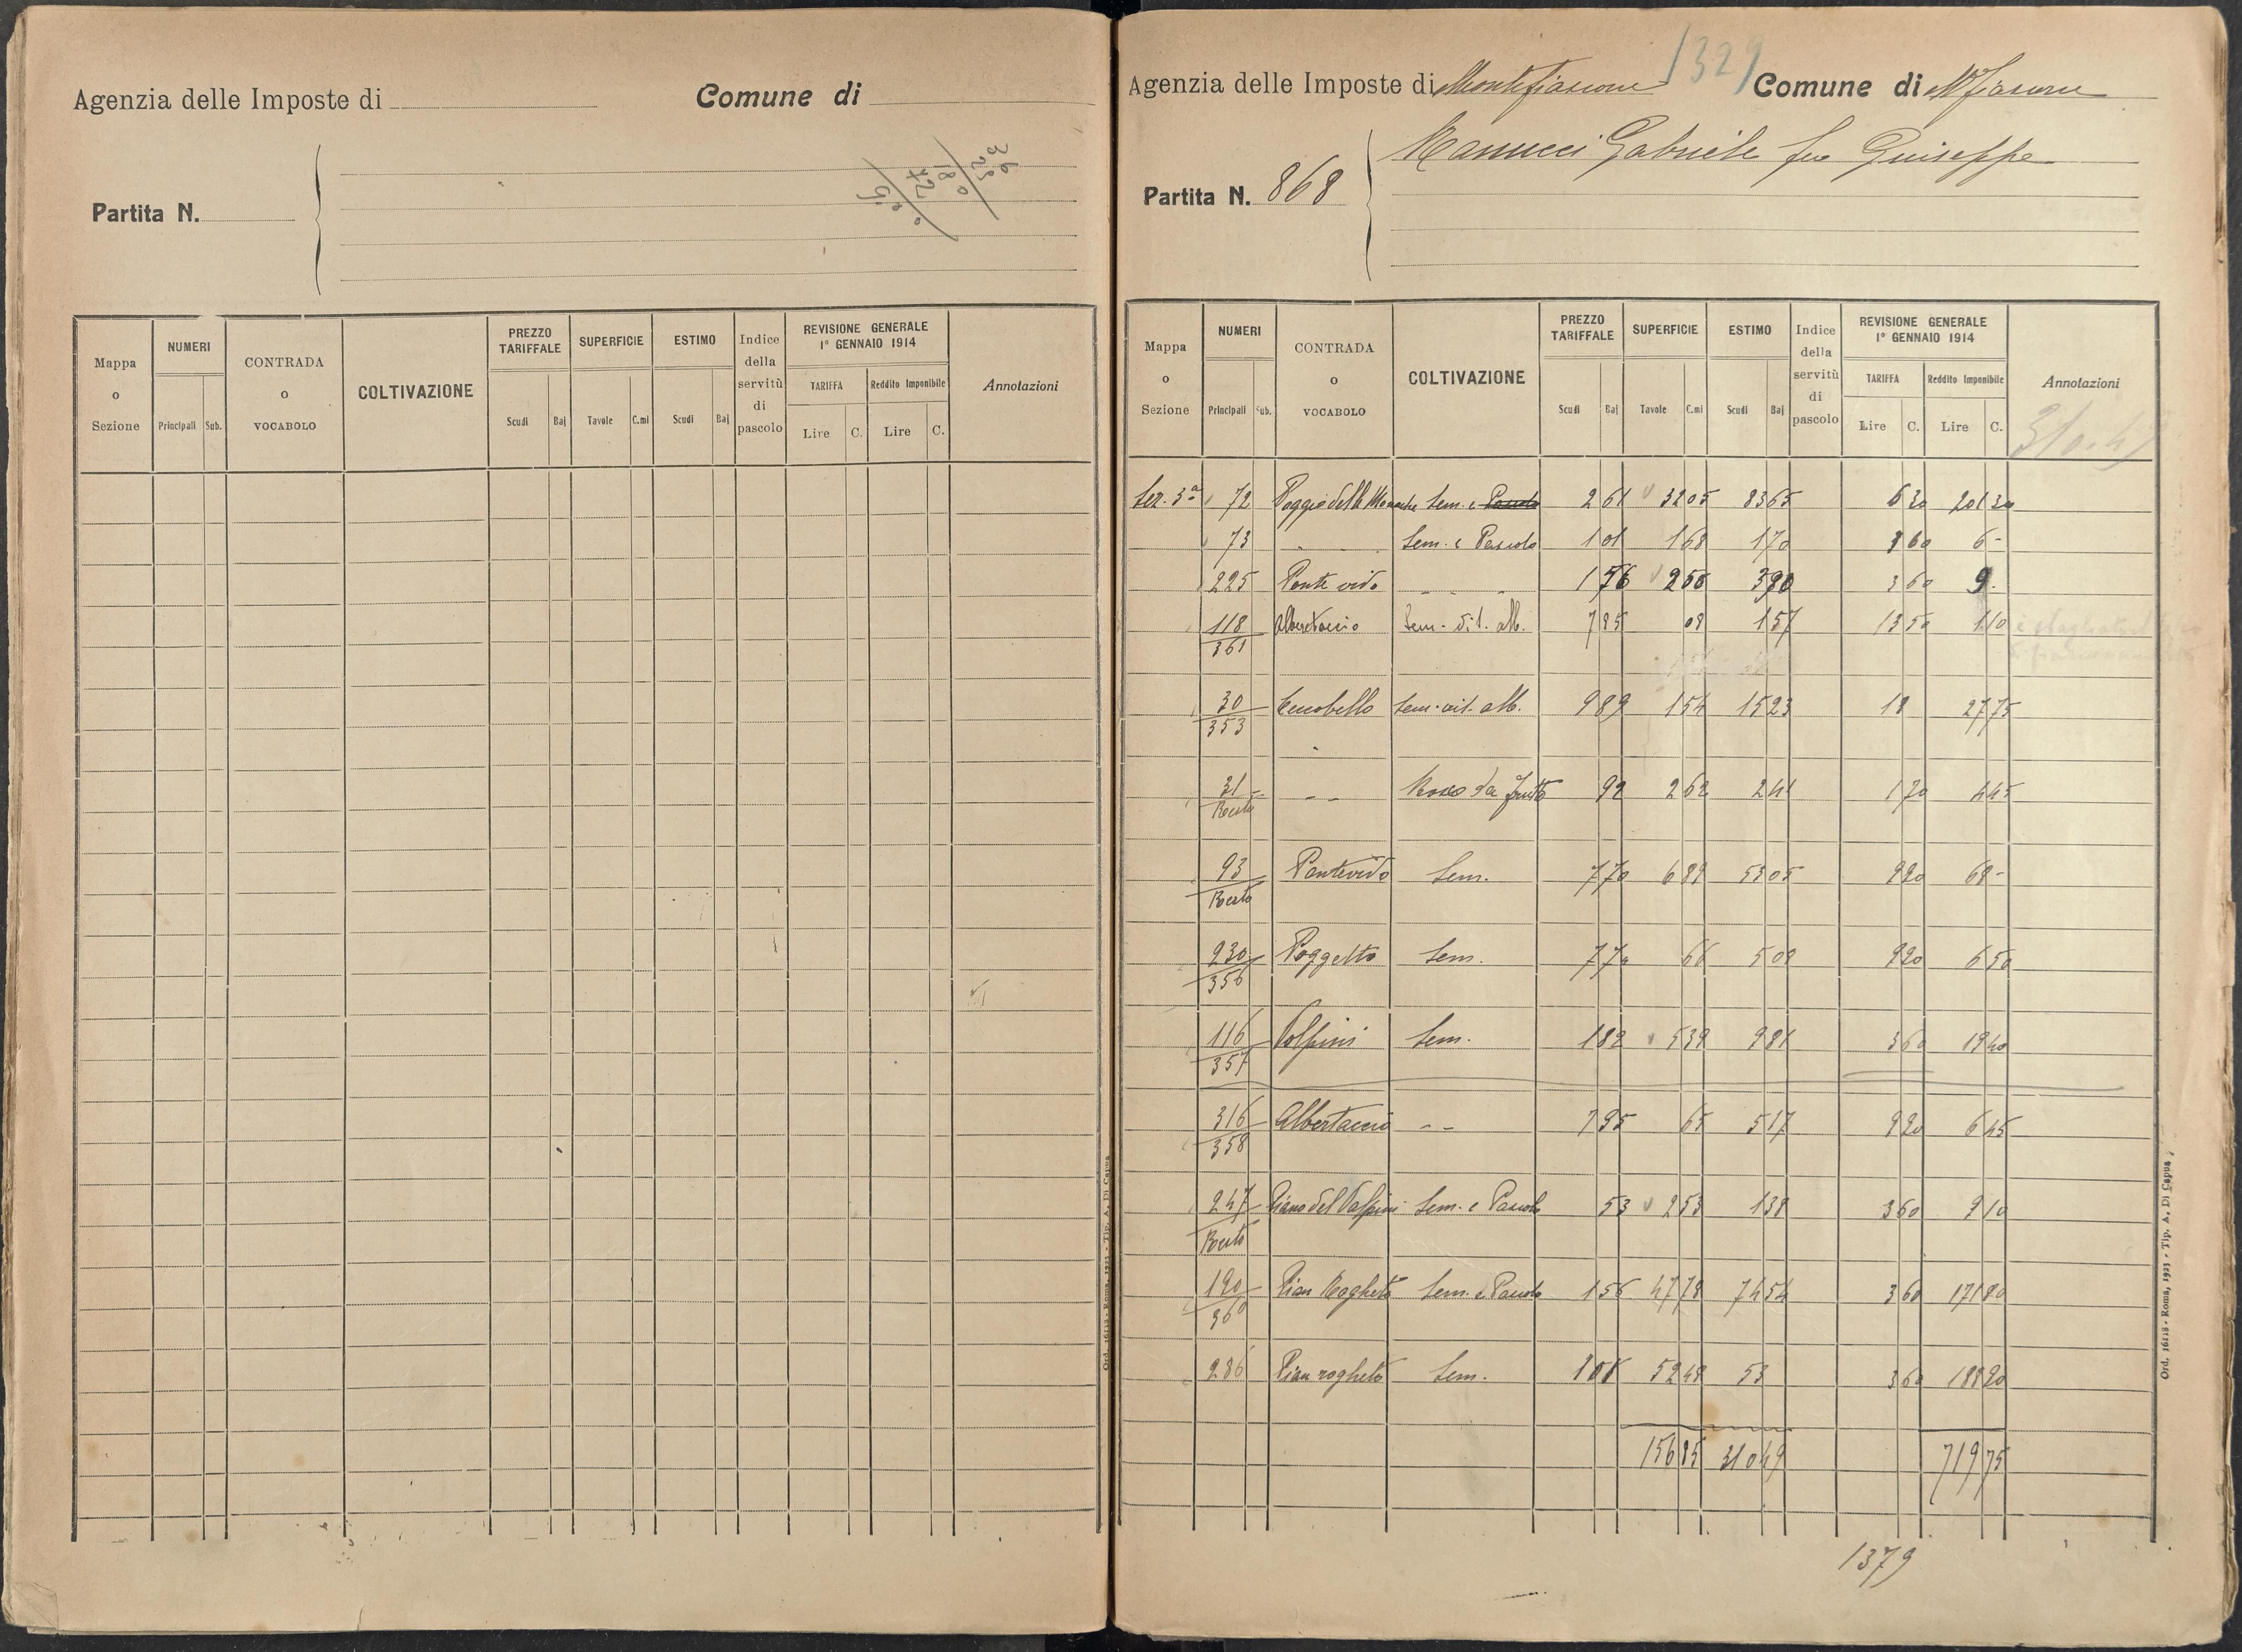 Agenzia delle Imposte di
Comune di
36
25
180
72
900
Partita N.
Mappa o Sezione
NUMERI
Principali
Sub.
CONTRADA o VOCABOLO
COLTIVAZIONE
PREZZO TARIFFALE
Scudi
Baj
SUPERFICIE
Tavole
C.mi
ESTIMO
Scudi
Baj
Indice della servitù di pascolo
REVISIONE GENERALE 1° GENNAIO 1914
TARIFFA
Reddito Imponibile
Lire
C.
Lire
C.
Annotazioni
Ord. 16118 - Roma, 1923 - Tip. A. Di Capua
1329
Agenzia delle Imposte di Montefiascone Comune di M.fiascone
Partita N. 868
Manucci Gabriele fu Giuseppe
Mappa o Sezione
NUMERI
Principali
Sub.
CONTRADA o VOCABOLO
COLTIVAZIONE
PREZZO TARIFFALE
Scudi
Baj
SUPERFICIE
Tavole
C.mi
ESTIMO
Scudi
Baj
Indice della servitù di pascolo
REVISIONE GENERALE 1° GENNAIO 1914
TARIFFA
Reddito Imponibile
Lire
C.
Lire
C.
Annotazioni
Sez. 3ª 72 Poggio delle Monache Sem. e Pascolo 2 61 32 05 83 65 6 30 201 30
73 " " Sem. e Pascolo 1 01 1 68 1 70 3 60 6 -
225 Ponte vido " " 1 56 2 50 3 90 3 60 9 -
118/361 Albertaccio Sem. vit. alb. 7 85 08 1 57 13 50 1 10
30/353 Sem. vit. alb. 9 89 1 54 15 23 18 27 75
31/Resto " " Bosco da frutto 92 2 62 2 41 1 70 4 45
93/Resto Pontevido Sem. 7 70 6 89 53 05 9 90 68 -
230/356 Poggetto Sem. 7 70 66 5 08 9 90 6 50
116/357 Volpini Sem. 1 82 5 39 9 81 3 60 19 40
316/358 Albertaccio " " 7 95 65 5 17 9 90 6 45
247/Resto Piano del Volpini Sem. e Pascolo 53 2 53 1 38 3 60 9 10
190/360 Pian Rogheto Sem. e Pascolo 1 56 47 78 74 54 3 60 171 80
286 Pian rogheto Sem. 1 01 52 48 53 3 60 188 90
156 85 310 49 719 75
1379
Ord. 16118 - Roma, 1923 - Tip. A. Di Capua